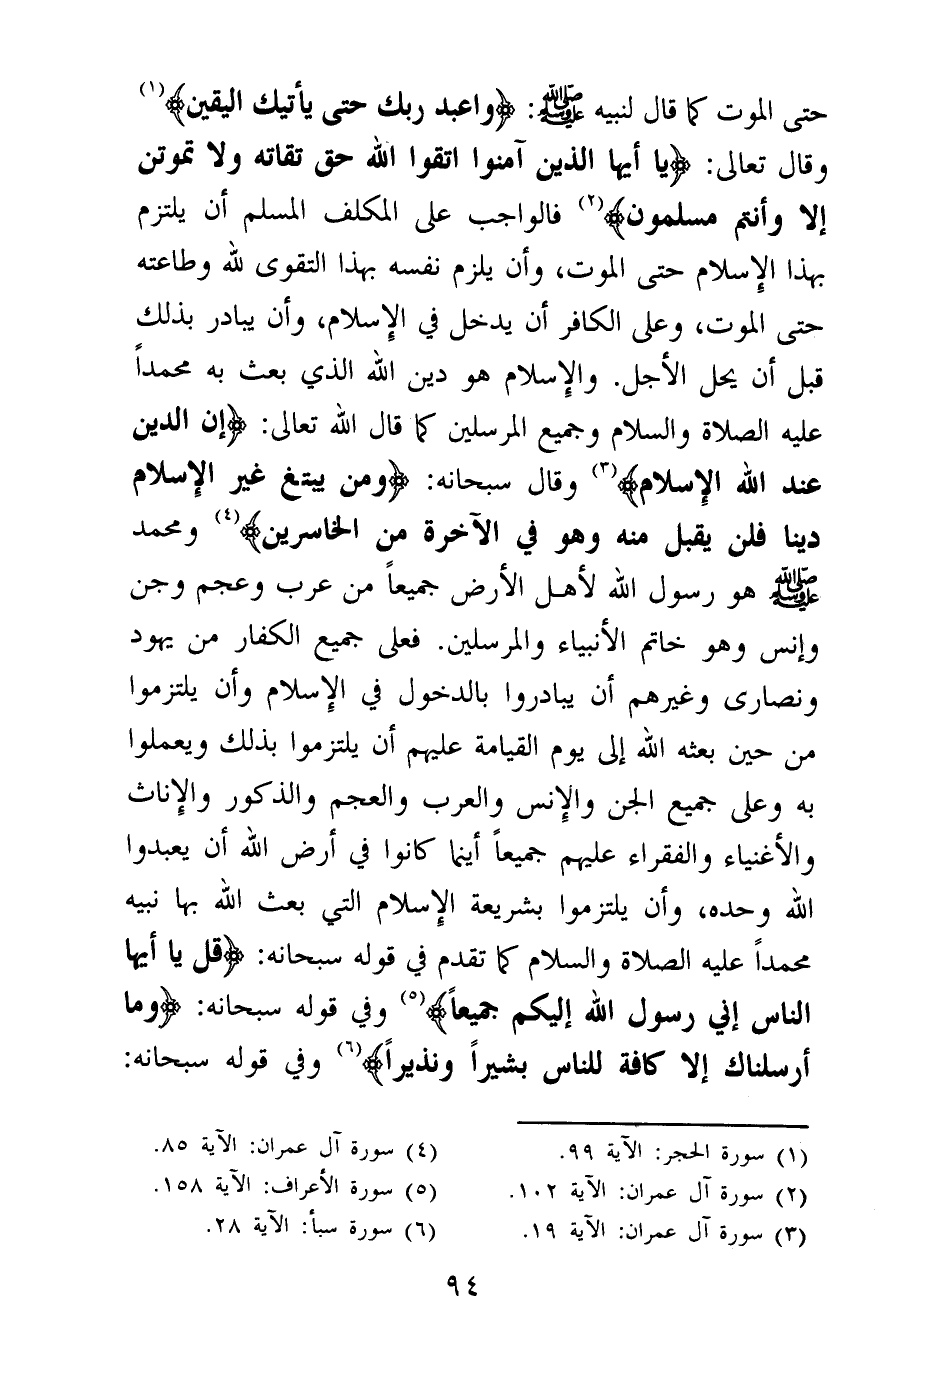 حتى الموت كما قال لنبيه ﷺ: ﴿واعبد ربك حتى يأتيك اليقين﴾(١)
وقال تعالى: ﴿يا أيها الذين آمنوا اتقوا الله حق تقاته ولا تموتن
إلا وأنتم مسلمون﴾(٢) فالواجب على المكلف المسلم أن يلتزم
بهذا الإسلام حتى الموت، وأن يلزم نفسه بهذا التقوى لله وطاعته
حتى الموت، وعلى الكافر أن يدخل في الإسلام، وأن يبادر بذلك
قبل أن يحل الأجل. والإسلام هو دين الله الذي بعث به محمداً
عليه الصلاة والسلام وجميع المرسلين كما قال الله تعالى: ﴿إن الدين
عند الله الإسلام﴾(٣) وقال سبحانه: ﴿ومن يبتغ غير الإسلام
دينا فلن يقبل منه وهو في الآخرة من الخاسرين﴾(٤) ومحمد
ﷺ هو رسول الله لأهل الأرض جميعاً من عرب وعجم وجن
وإنس وهو خاتم الأنبياء والمرسلين. فعلى جميع الكفار من يهود
ونصارى وغيرهم أن يبادروا بالدخول في الإسلام وأن يلتزموا
من حين بعثه الله إلى يوم القيامة عليهم أن يلتزموا بذلك ويعملوا
به وعلى جميع الجن والإنس والعرب والعجم والذكور والإناث
والأغنياء والفقراء عليهم جميعاً أينما كانوا في أرض الله أن يعبدوا
الله وحده، وأن يلتزموا بشريعة الإسلام التي بعث الله بها نبيه
محمداً عليه الصلاة والسلام كما تقدم في قوله سبحانه: ﴿قل يا أيها
الناس إني رسول الله إليكم جميعاً﴾(٥) وفي قوله سبحانه: ﴿وما
أرسلناك إلا كافة للناس بشيراً ونذيراً﴾(٦) وفي قوله سبحانه:
(١) سورة الحجر: الآية ٩٩.
(٢) سورة آل عمران: الآية ١٠٢.
(٣) سورة آل عمران: الآية ١٩.
(٤) سورة آل عمران: الآية ٨٥.
(٥) سورة الأعراف: الآية ١٥٨.
(٦) سورة سبأ: الآية ٢٨.
٩٤